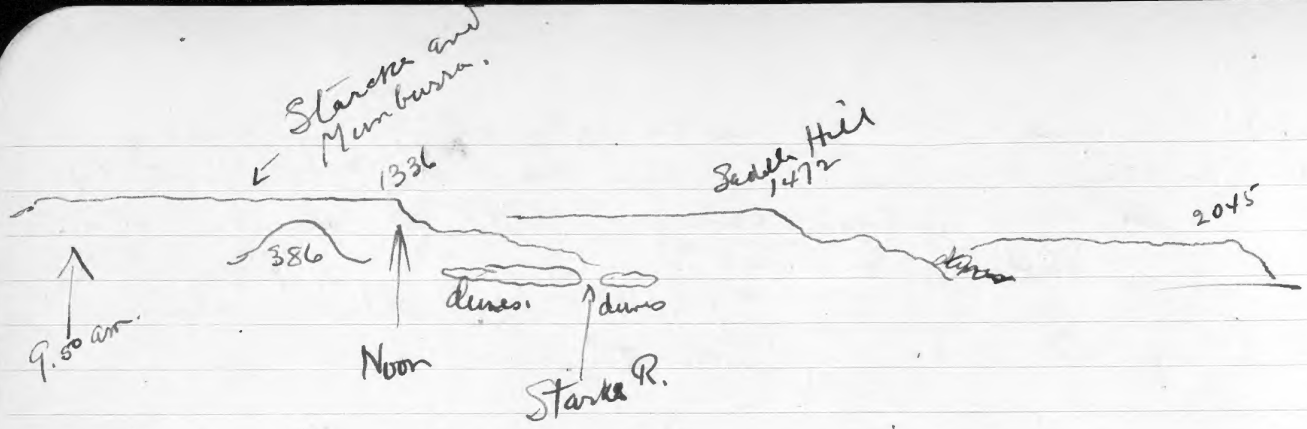 Starcke and
Munburra.
1336
Saddle Hill
1472
2045
386
dunes.
dunes
9.50 am.
Noon
Starke R.